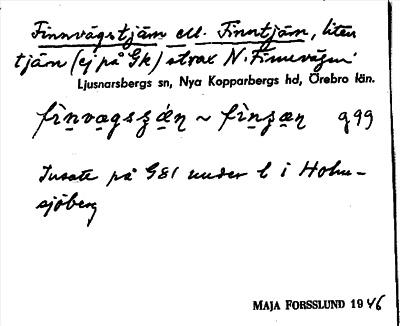 Finnvägstjärn ell. Finntjärn, liten
tjärn (ej på Gk) strax N. Finnvägen.
Ljusnarsbergs sn, Nya Kopparbergs hd, Örebro län.
g 99
Insatt på G81 under l i Holm-
sjöberg
MAJA FORSSLUND 1946